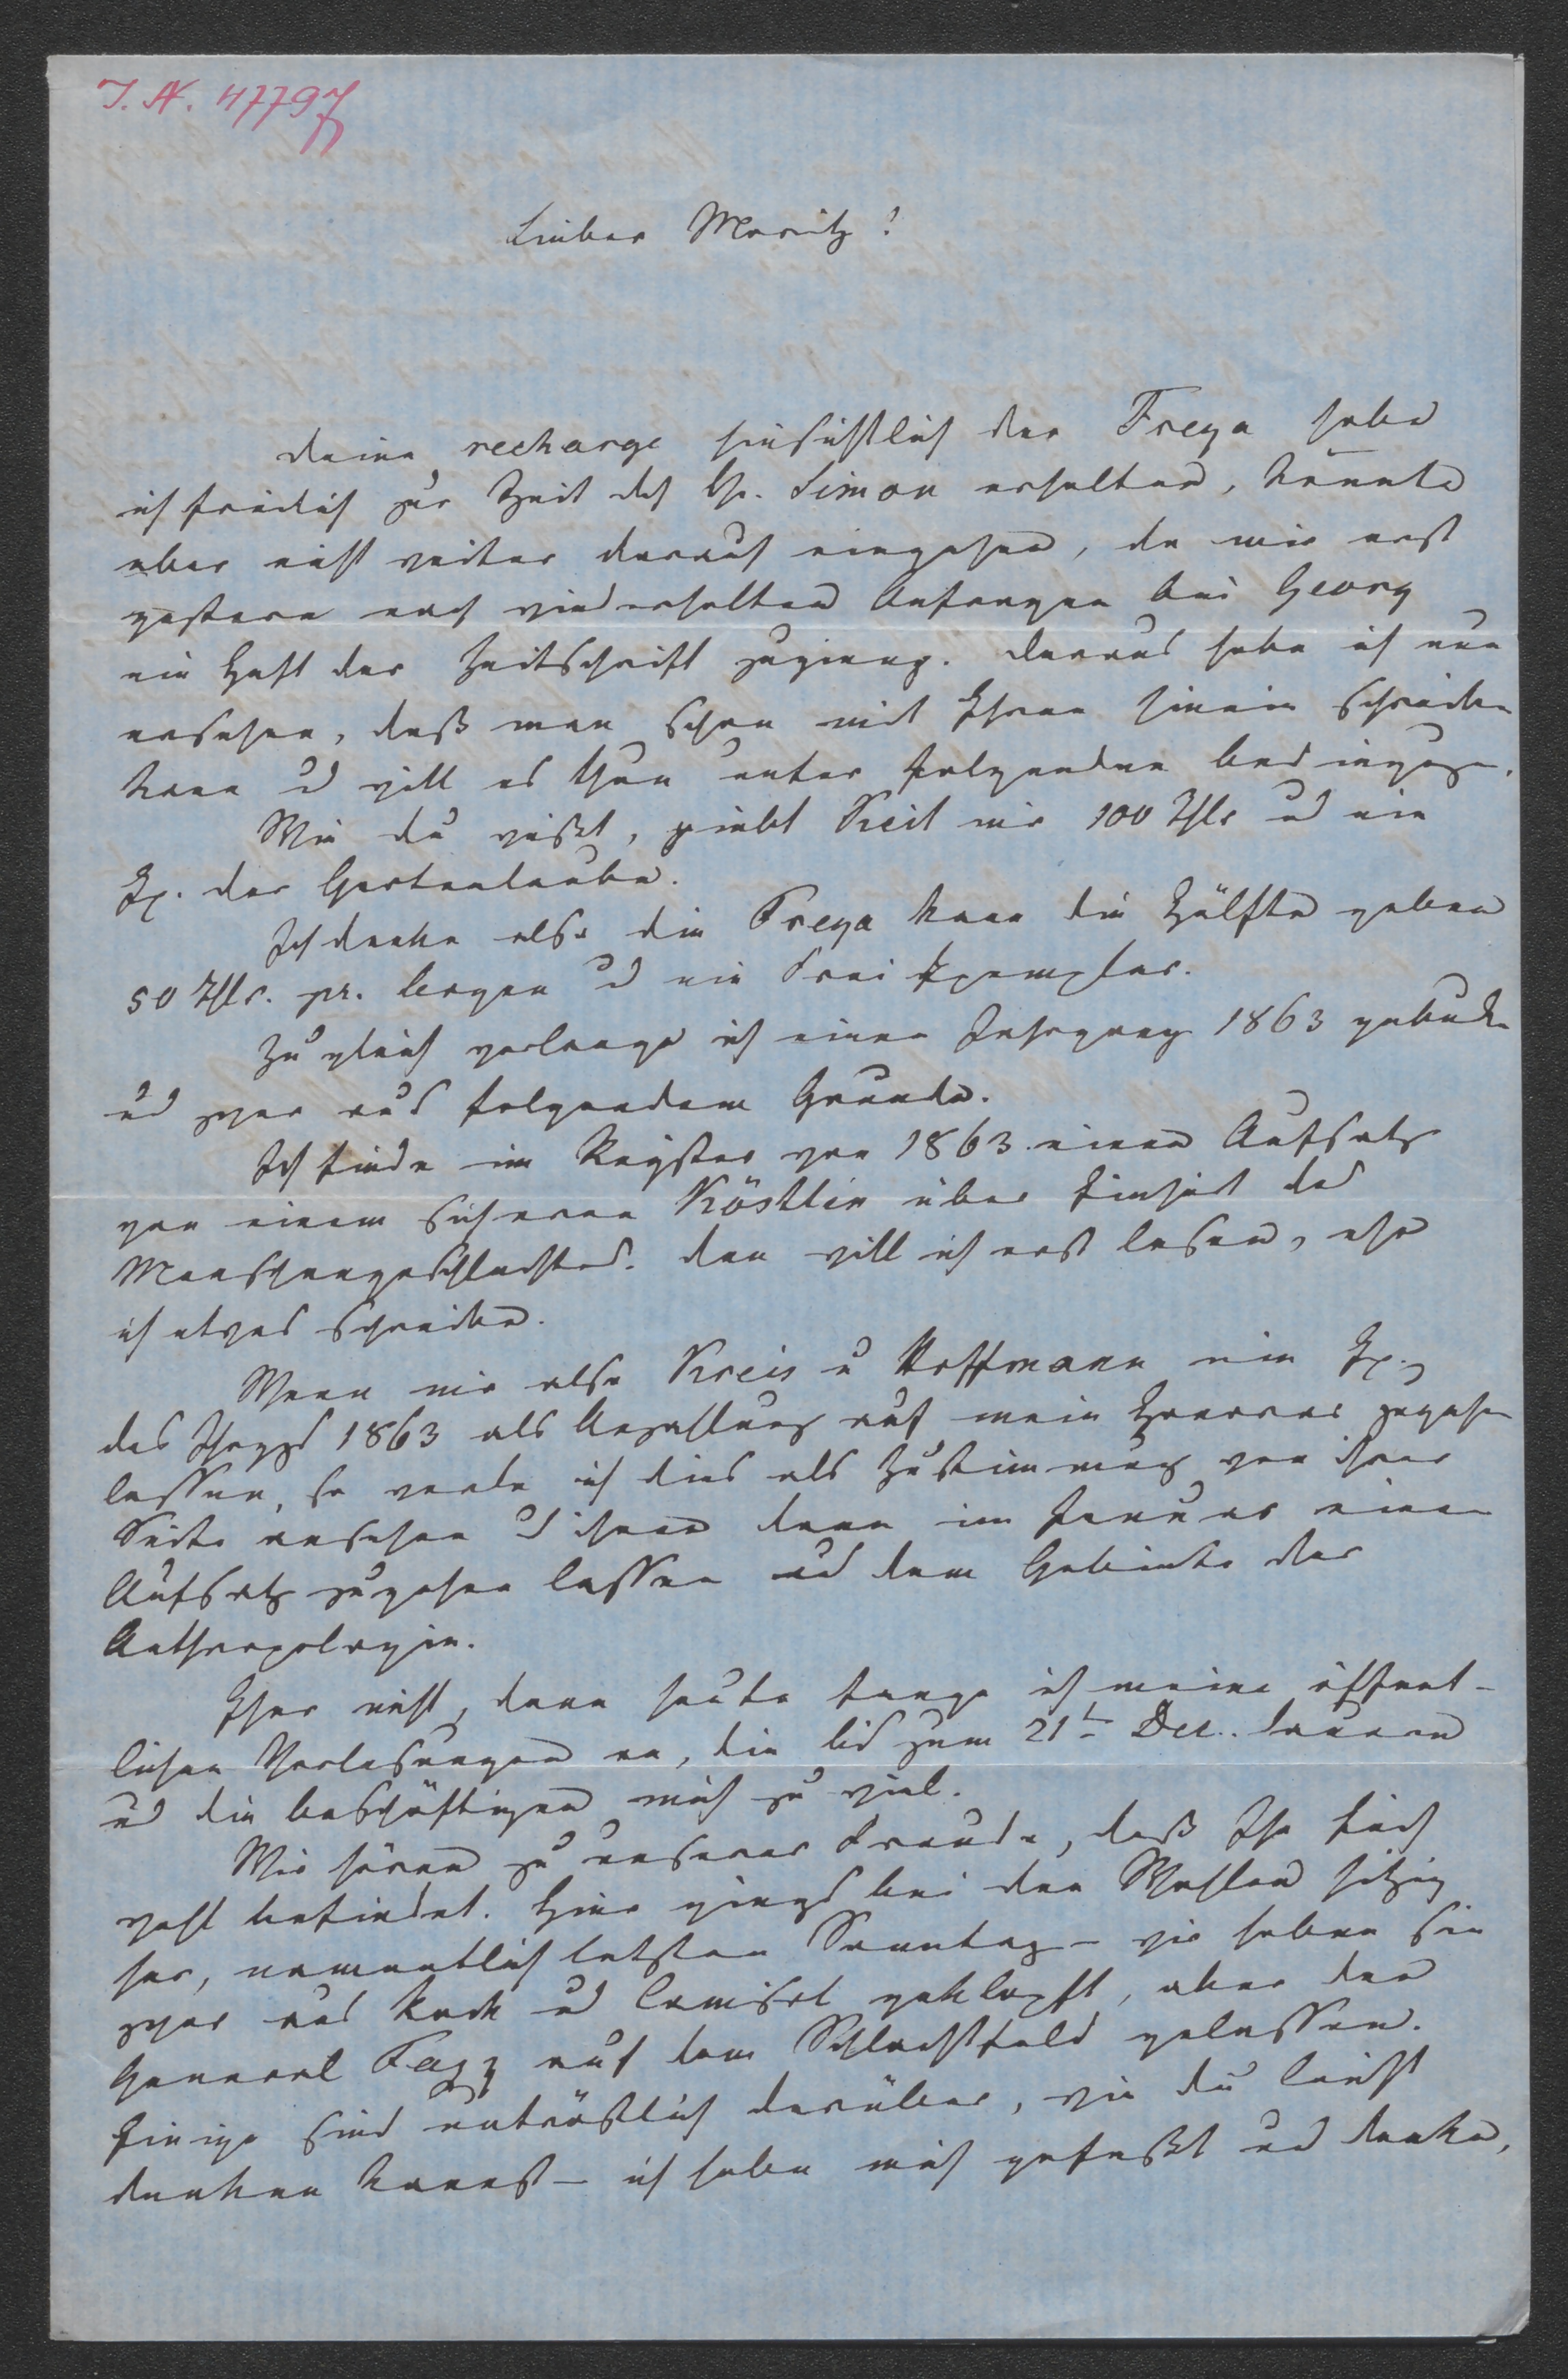 I. N. 47797
Lieber Moritz!
Deine recharge hinsichtlich der Freya habe
ich freilich zur Zeit des Hr. Simon erhalten, konnte
aber nicht weiter darauf eingehen, da mir erst
gestern nach wiederholten Anfragen bei Georg
ein Heft der Zeitschrift zugieng. Daraus habe ich nun
ersehen, daß man schon mit Ehren hinein schreiben
kann ud will es thun unter folgenden Bedingungen.
Wie du weißt, giebt Keil mir 100 Thlr ud ein
Ex. der Gartenlaube.
Ich denke also die Freya kann die Hälfte geben
50 Thlr. pr. Bogen ud ein Frei Exemplar.
Zu gleich verlange ich einen Jahrgang 1863 gebunden
ud zwar aus folgendem Grunde.
Ich finde im Register von 1863 einen Aufsatz
von einem sicheren Köstlin über Einheit des
Menschengeschlechtes. Den will ich erst lesen, ehe
ich etwas schreibe.
Wenn mir also Kreis u Hoffmann ein Ex.
des Jhrggs 1863 als Anzahlung auf mein Honorar zugehen
lassen, so werde ich dies als Zustimmung von ihrer
Seite ansehen ud ihnen dann im Januar einen
Aufsatz zugehen lassen aus dem Gebiete der
Anthropologie.
Eher nicht, denn heute fange ich meine öffent-
lichen Vorlesungen an, die bis zum 21t Dec. dauern
ud die beschäftigen mich zu viel.
Wir hören zu unserer Freude, daß Ihr Euch
wohl befindet. Hier giengs bei den Wahlen hitzig
her, namentlich letzten Sonntag – wir haben sie
zwar aus Rock ud Camisol geklopft, aber den
General Fazy auf dem Schlachtfeld gelassen.
Einige sind untröstlich darüber, wie du leicht
denken kannst – ich habe mich gefaßt ud denke,